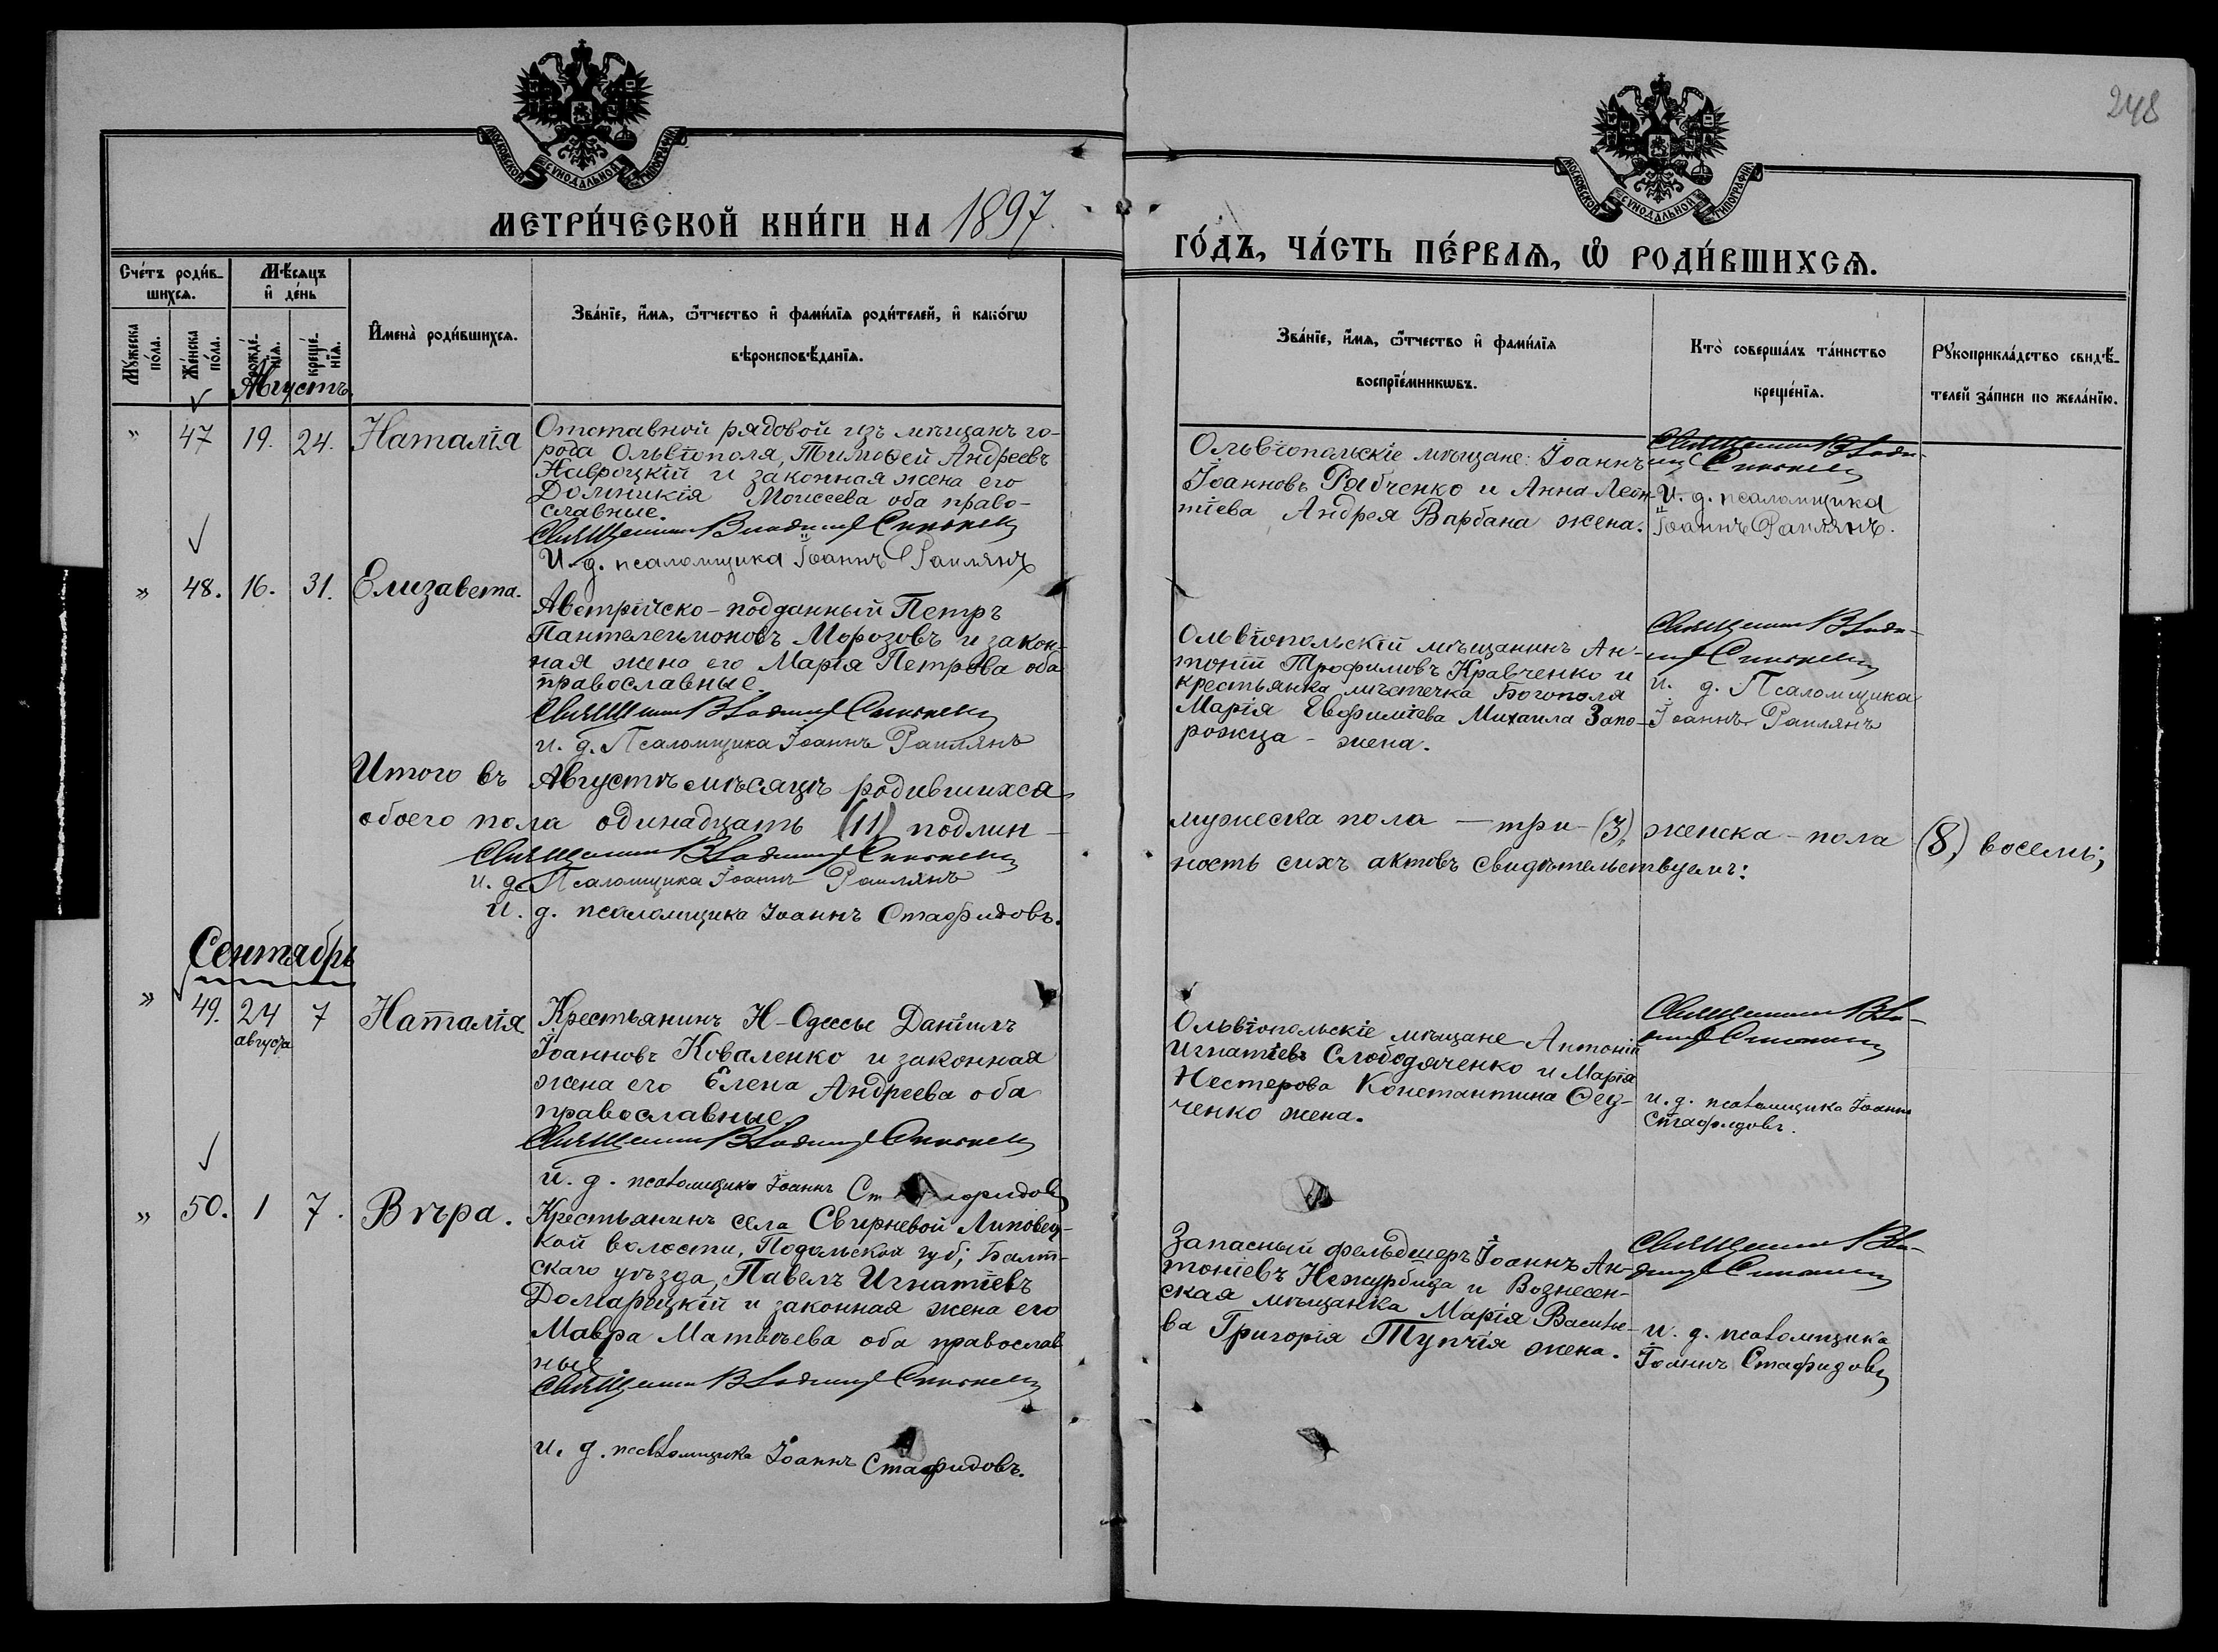 248
МОСКОВСКОЙ СѴНОДАЛЬНОЙ ТИПОГРАФІИ
МОСКОВСКОЙ СѴНОДАЛЬНОЙ ТИПОГРАФІИ
МЕТРИ́ЧЕСКОЙ КНИ́ГИ НА 1897.
ГО́ДЪ, ЧА́СТЬ ПЕ́РВАѦ, Ѡ РОДИ́ВШИХСѦ.
Сче́тъ роди́в-
шихсѧ.
Мѣ́сѧцъ
и҆ де́нь
Мꙋ́жеска
по́ла.
Же́нска
по́ла.
рожде́-
нїѧ.
креще́-
нїѧ.
И҆мена̀ роди́вшихсѧ.
Зва́нїе, и҆́мѧ, ѻ҆́тчество и҆ фами́лїѧ роди́телей, и҆ како́гѡ
вѣроисповѣ́данїѧ.
Зва́нїе, и҆́мѧ, ѻ҆́тчество и҆ фами́лїѧ
воспрїе́мникѡвъ.
Кто̀ соверша́лъ та́инство
креще́нїѧ.
Рꙋкоприкла́дство свидѣ́-
телей за́писи по жела́нїю.
Августъ.
" 47 19. 24. Наталія
Отставной рядовой изъ мѣщанъ го-
рода Ольвіополя, Тимоѳей Андреевъ
Навроцкій и законная жена его
Домникія Моисеева оба право-
славные.
Священникъ Владимір
И. д. псаломщика Іоаннъ Раилянъ
Ольвіопольскіе мѣщане: Іоаннъ
Іоанновъ Рябченко и Анна Леон-
тіева Андрея Варбана жена.
Священникъ Влади-
мір
И. д. псаломщика
Іоаннъ Раилянъ.
" 48. 16. 31. Елизавета.
Австрійско-подданный Петръ
Пантелеимоновъ Морозовъ и закон-
ная жена его Марія Петрова оба
православные
Священникъ Владимір
и. д. Псаломщика Іоаннъ Раилянъ
Ольвіопольскій мѣщанинъ Ан-
тоній Трофимовъ Кравченко и
крестьянка мѣстечка Богополя
Марія Евфиміева Михаила Запо-
рожца - жена.
Священникъ Влади-
мір
и. д. Псаломщика
Іоаннъ Раилянъ
Итого въ Августѣ мѣсяцѣ родившихся
мужеска пола — три - (3), женска - пола (8) восемь;
обоего пола одинадцать (11) подлин-
ность сихъ актовъ свидѣтельствуемъ:
Священникъ Владимір
и. д. Псаломщика Іоаннъ Раилянъ
и. д. псаломщика Іоаннъ Стафидовъ.
Сентябрь
" 49. 24 августа 7 Наталія
Крестьянинъ Н-Одессы Даніилъ
Іоанновъ Коваленко и законная
жена его Елена Андреева оба
православные
Священникъ Владимір
и. д. псаломщика Іоаннъ Стафидовъ
Ольвіопольскіе мѣщане Антоній
Игнатіевъ Слободяченко и Марія
Нестерова Константина Ѳед-
ченко жена.
Священникъ Вла-
димір
и. д. псаломщика Іоаннъ
Стафидовъ.
" 50. 1 7. Вѣра.
Крестьянинъ села Свирневой Липовец-
кой волости, Подольской губ; Балт-
скаго уѣзда, Павелъ Игнатіевъ
Домарецкій и законная жена его
Мавра Матвѣева оба православ
ные
Священникъ Владимір
и. д. псаломщика Іоаннъ Стафидовъ.
Запасный фельдшеръ Іоаннъ Ан-
тоніевъ Нежурбида и Вознесен-
ская мѣщанка Марія Василье-
ва Григорія Тупчія жена.
Священникъ Вла-
димір
и. д. псаломщика
Іоаннъ Стафидовъ